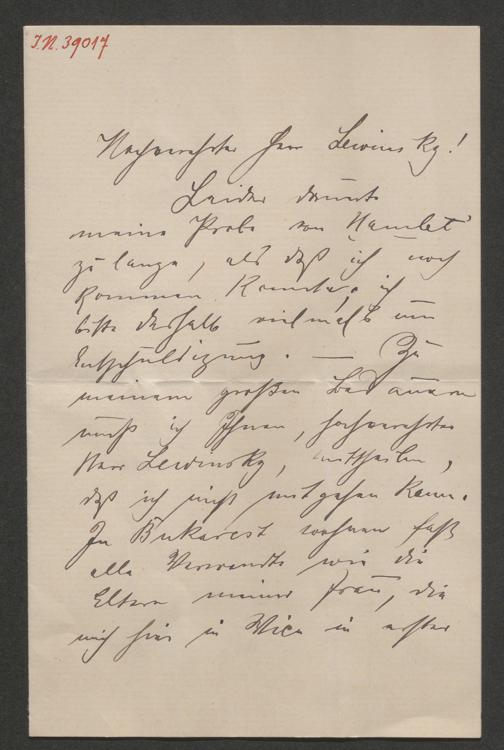 I.N. 39017
Hochverehrter Herr Lewinsky!
Leider dauerte
meine Probe von "Hamlet"
zu lange, als daß ich noch
kommen konnte; ich
bitte deshalb vielmals um
Entschuldigung. — Zu
meinem großen Bedauern
muß ich Ihnen, hochverehrter
Herr Lewinsky, mittheilen,
daß ich nicht mitgehen kann.
In Bukarest wohnen fast
alle Verwandte wie die
Eltern meiner Frau, die
mich hier in Wien in erster